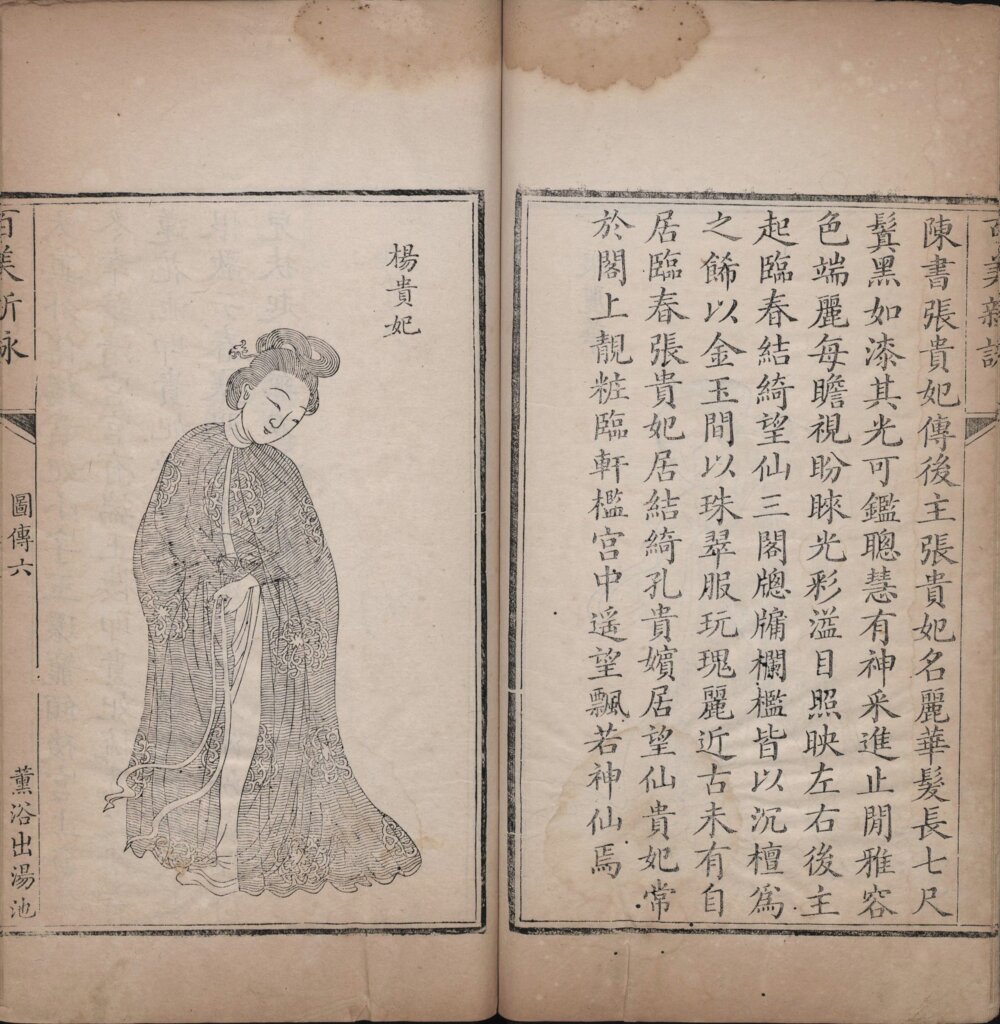 百美新詠
陳書張貴妃傳後主張貴妃名麗華髮長七尺
鬒黑如漆其光可鑑聰慧有神釆進止閒雅容
色端麗每瞻視盼睞光彩溢目照映左右後主
起臨春結綺望仙三閣牕牖欄檻皆以沉檀爲
之餙以金玉間以珠翠服玩瑰麗近古未有自
居臨春張貴妃居結綺孔貴嬪居望仙貴妃常
於閣上靚粧臨軒檻宮中遥望飄若神仙焉
楊貴妃
百美新詠
圖傳六
薰浴出湯池